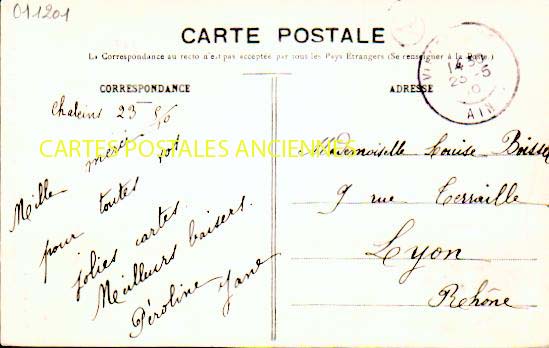 011201
CARTE POSTALE
La Correspondance au recto n'est pas acceptée par tous les Pays Etrangers (Se renseigner à la Poste.)
CORRESPONDANCE
Chaleins 23
Mille merci
pour toutes vos
jolies cartes.
Meilleurs baisers.
Péroline Jane
CARTES POSTALES ANCIENNES
ADRESSE
14
23 -5
AIN
Mademoiselle Louise
9 rue Terraille
Lyon
Rhône